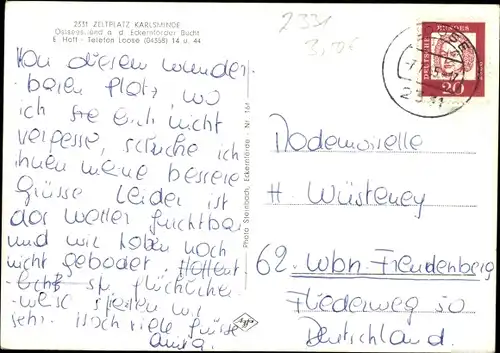 2531 ZELTPLATZ KARLSMINDE
Ostseestrand a. d. Eckernförder Bucht
E. Hoff - Telefon Loose (04358) 14 u. 44
Von diesem wunder-
baren Platz, wo
ich sie auch nicht
vergesse, schicke ich
ihnen meine bessere
Grüsse. Leider ist
das Wetter furchtbar
und wir haben noch
nicht gebadet.
spielen wir
sehr. Noch viele Grüsse
Anita.
Photo Steinbach, Eckernförde - Nr. 16f
2331
DEUTSCHE
BUNDESPOST
20
2331
Mademoiselle
H. Wüsteney
62. Wbn. Freudenberg
Fliederweg 50
Deutschland.